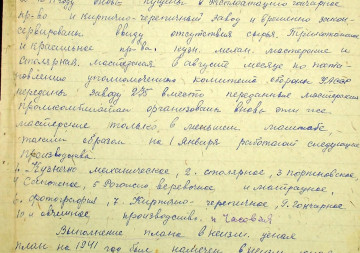 в 1941 году вновь пущены в эксплоатацию гончарное
пр-во и Кирпично-черепичный завод и временно законсервированы
ввиду отсутствия сырья, Трикотажное
и красильное пр-во. кузн. механ. мастерские и
столярная мастерская в августе месяце по постановлению
уполномочен. комитета обороны СССР
переданы заводу 235 вместо переданных мастерских
промкомбинатом организованы вновь эти же
мастерские только в меньшем масштабе
таким образом на 1 января работают следующие
производства
1. Кузнечно механическое, 2. столярное, 3 портновское
4 Сапожное, 5 Рогожно веревочное и
6. фотография, 7. Кирпично-черепичное, 9. Гончарное
10, и овчинное производство и Часовая
Выполнение плана в неизм. ценах
план на 1941 год был намечен в